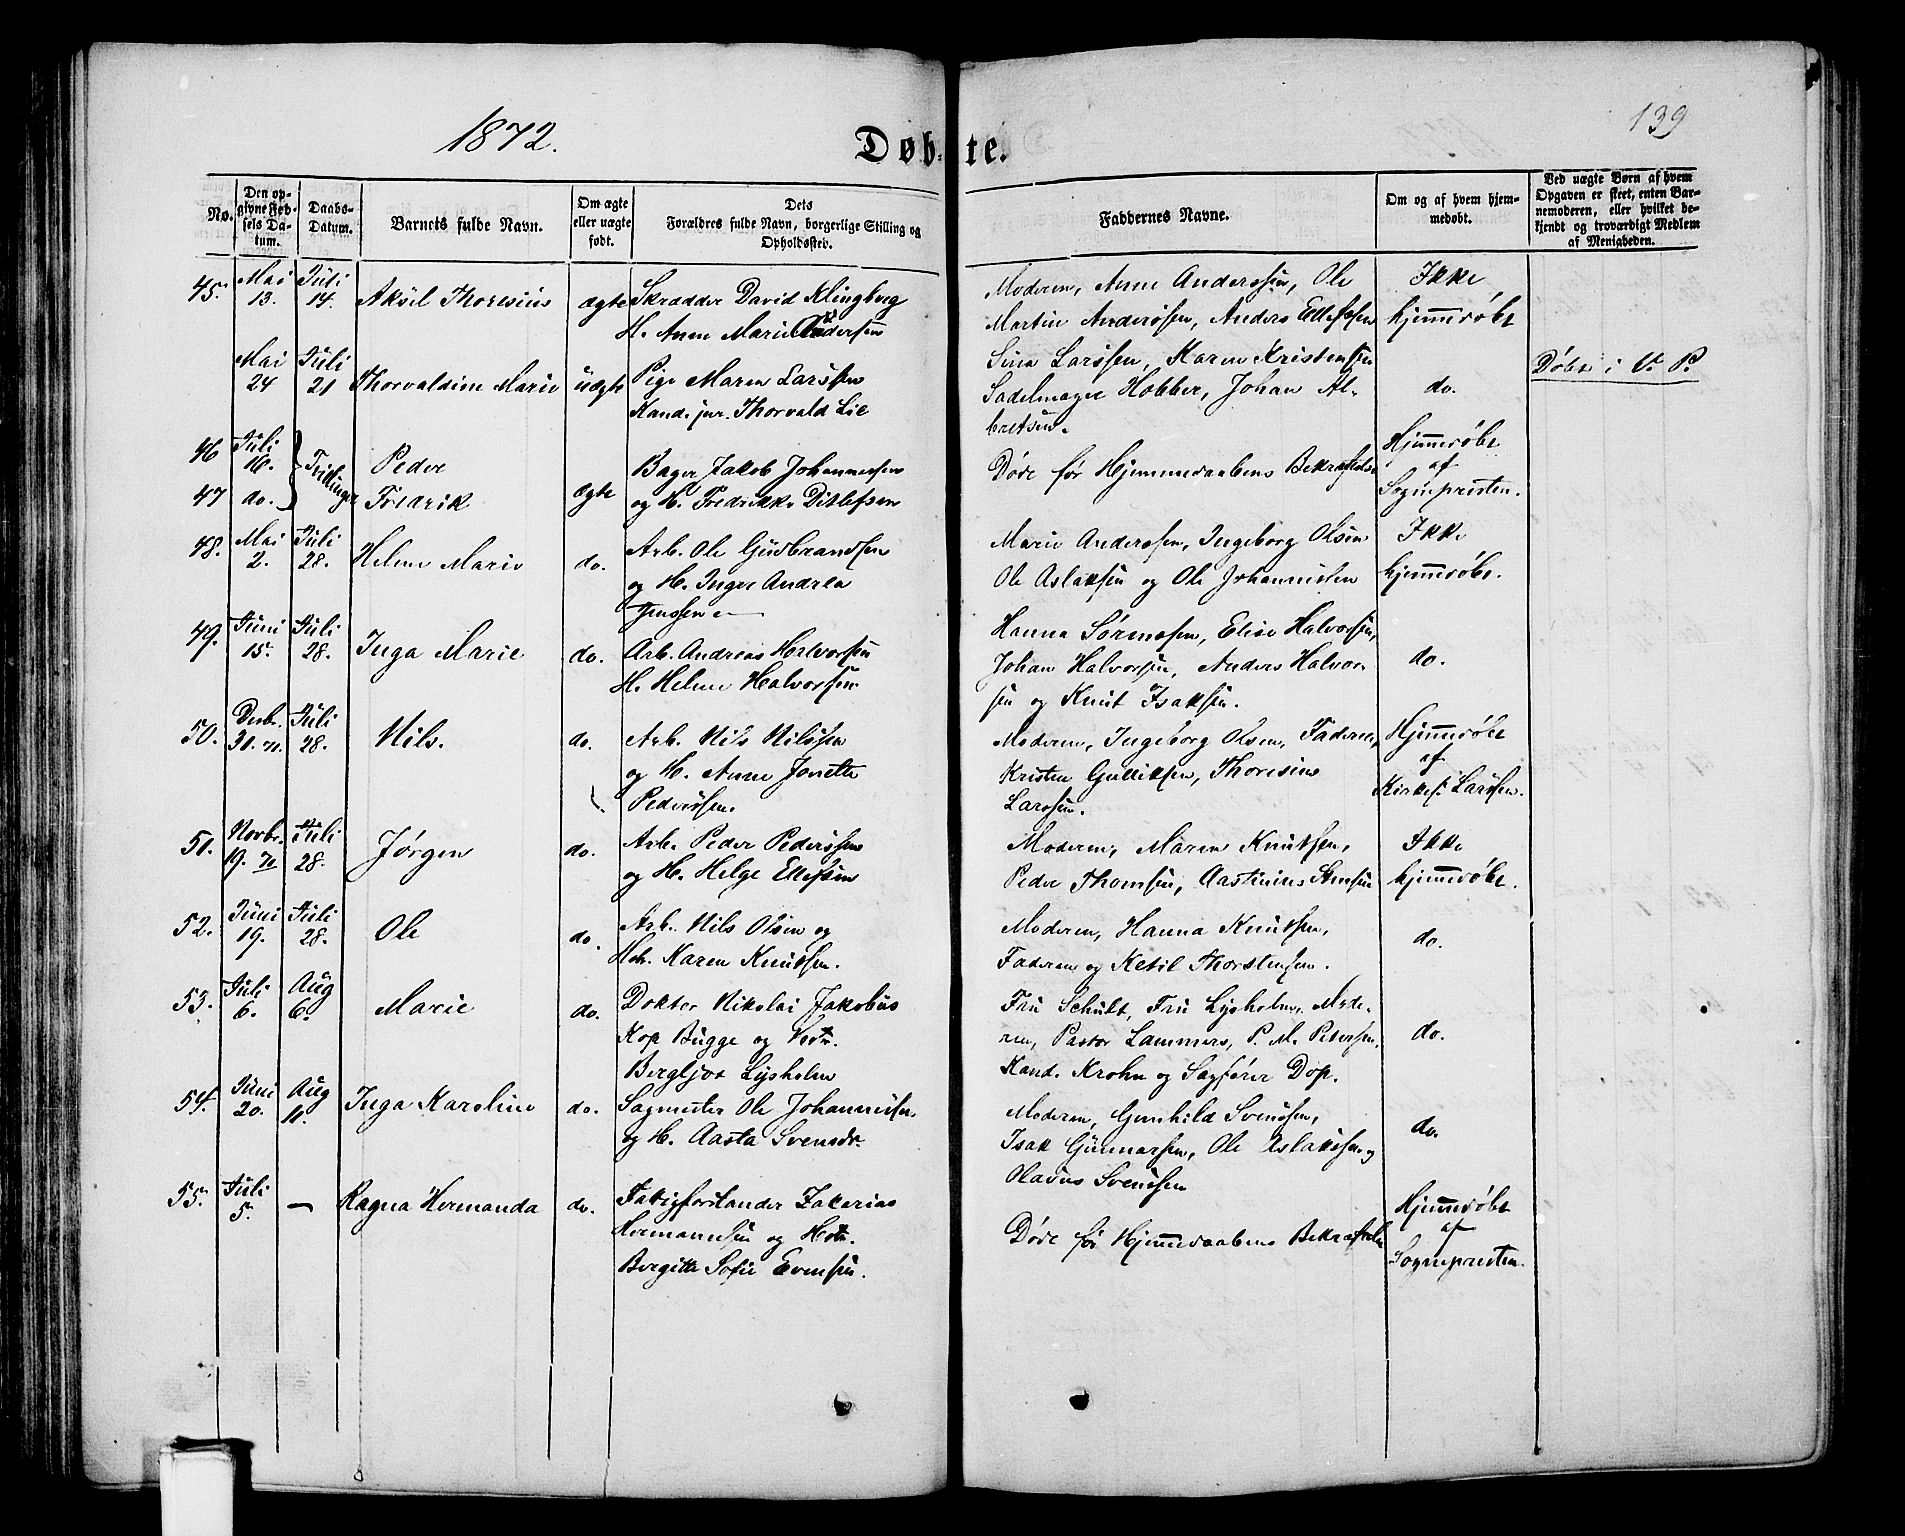 1872.
Døbte.
139
No.
Den opgivne Fødsels Datum.
Daabs-Datum.
Barnets fulde Navn.
Om ægte eller uægte født.
Dets Forældres fulde Navn, borgerlige Stilling og Opholdssted.
Faddernes Navne.
Om og af hvem hjemmedøbt.
Ved uægte Børn af hvem Opgaven er skeet, enten Barnemoderen, eller hvilket bekjendt og troværdigt Medlem af Menigheden.
45. Mai 13. Juli 14. Aksel Thoresius ægte Skrædder David Klingberg
H. Anne Marie Andersen
Moderen, Anne Anderssen, Ole
Martin Anderssen, Anders Ellefsen
Ikke
hjemmedøbt
Mai 24 Juli 21 Thorvaldine Marie uægte Pige Maren Larssen
Kand. jur. Thorvald Lie
Sina Larssen, Maren Kristensen
Sadelmager Hobber, Johan Al-
bretsen.
do.
Døbt i V. P.
46 Juli 16. Tvillinger Peder
47 do. Fredrik ægte
Bager Jakob Johannessen
og H. Fredrikke Ditlefsen
Døde før Hjemmedaabens Bekræftelse
Hjemmedøbt
af
Sognepresten.
48. Mai 2. Juli 28. Helene Marie do. Arb. Ole Gudbrandsen
og H. Inger Andrea
Jenssen
Marie Anderssen, Ingeborg Olsen
Ole Aslaksen og Ole Johannessen
Ikke
hjemmedøbt.
49. Juni 15. Juli 28. Inga Marie do. Arb. Andreas Halvorsen
H. Helene Halvorsen
Hanna Sørenssen, Elise Halvorsen,
Johan Halvorsen, Anders Halvor-
sen og Knut Isaksen.
do.
50. Decbr. 30. 71. Juli 28. Nils. do. Arb. Nils Nilssen
og H. Anne Jonette
Pederssen.
Moderen, Ingeborg Olsen, Faderen,
Kristen Gulliksen, Thoresius
Larssen.
Hjemmedøbt
af
Kirkes. Larssen.
51. Novbr. 19. 71 Juli 28. Jørgen do. Arb. Peder Pederssen
og H. Helge Ellefsen
Moderen, Maren Knutsen,
Peder Thomsen, Aastinius Stensen
Ikke
hjemmedøbt.
52. Juni 19. Juli 28. Ole do. Arb. Nils Olsen og
Hstr. Karen Knutsen.
Moderen, Hanna Knutsen,
Faderen og Ketil Thorstensen.
do.
53. Juli 6. Aug 6. Marie do. Doktor Nikolai Jakobus
Kop Bugge og
Bergljot Lysholm
Fru Schult, Fru Lysholm, Mode-
ren, Pastor Lammers, P. M. Petersen,
Kand. Krohn og Sagfører Dop.
do.
54. Juni 20. Aug 11. Inga Karoline do. Sagmester Ole Johannessen
og H. Aasta Svensdr.
Moderen, Gunhild Svenssen,
Isak Gunnarsen, Ole Aslaksen og
Olavus Svenssen
do.
55. Juli 5. — Ragna Hermanda do. Fattigforstander Zakarias
Hermannsen og Hstr.
Bergitte Sofie Evensen.
Døde før Hjemmedaabens Bekræftelse
Hjemmedøbt
af
Sognepresten.